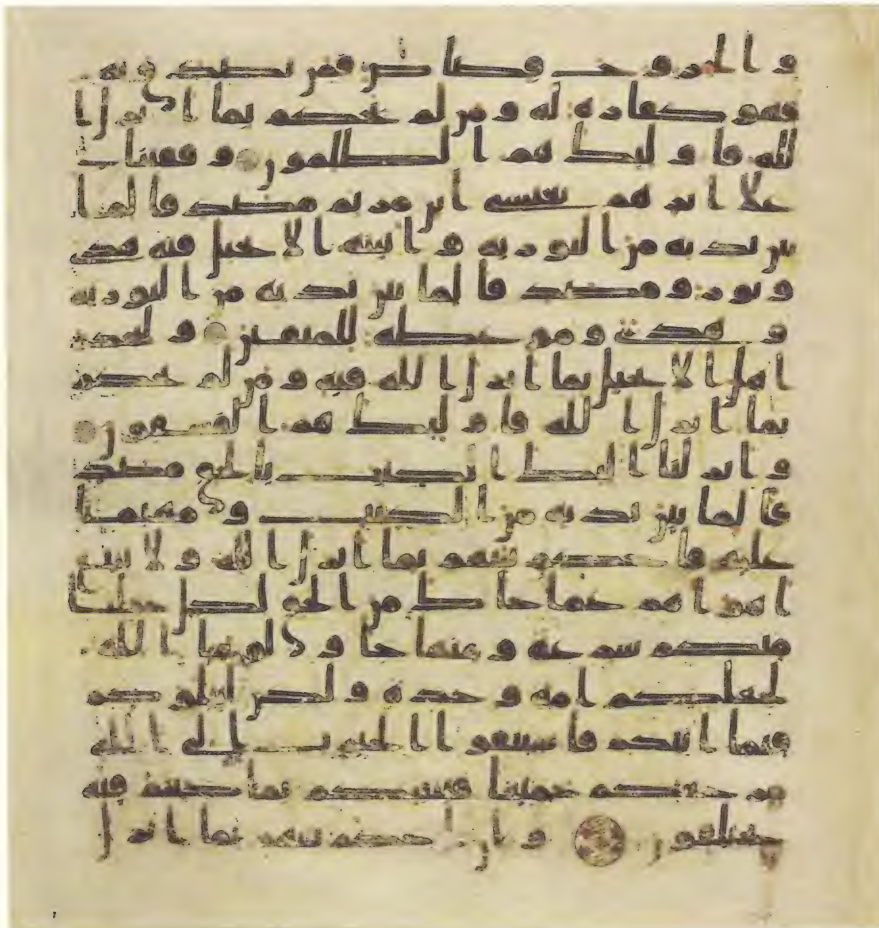 والجروح قصاص فمن تصدق به
فهو كفارة له ومن لم يحكم بما انزل ا
لله فاوليك هم الظلمون وقفينا
على اثرهم بعيسى ابن مريم مصدقا لما
بين يديه من التورية واتينه الانجيل فيه هدى
ونور ومصدقا لما بين يديه من التورية
وهدى وموعظة للمتقين وليحكم
اهل الانجيل بما انزل الله فيه ومن لم يحكم
بما انزل الله فاوليك هم الفسقون
وانزلنا اليك الكتب بالحق مصد
قا لما بين يديه من الكتب ومهيمنا
عليه فاحكم بينهم بما انزل الله ولا تتبع
اهواهم عما جاك من الحق لكل جعلنا
منكم شرعة ومنهاجا ولو شا الله
لجعلكم امة وحدة ولكن ليبلوكم
فيما اتيكم فاستبقوا الخيرت الى الله
مرجعكم جميعا فينبيكم بما كنتم فيه
تختلفون وان احكم بينهم بما انزل